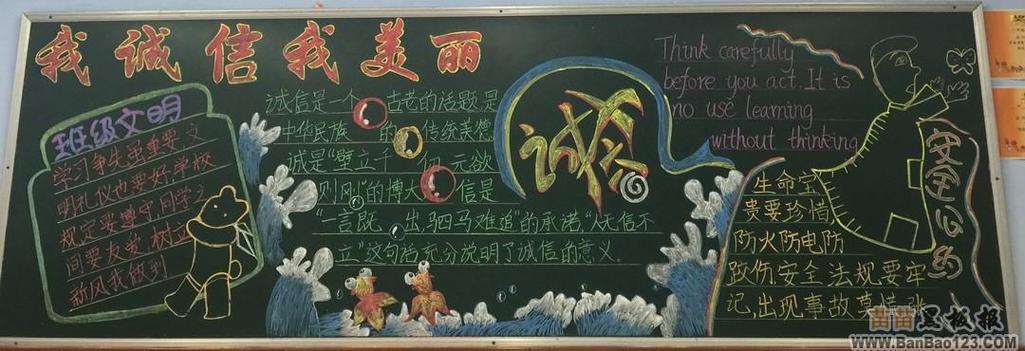 我诚信我美丽
班级文明
学习争先虽重要,文
明礼仪也要好,学校
规定要遵守,同学之
间要友爱,树立
新风我做到
诚信是一个 古老的话题,是
中华民族 的 传统美德
诚是“壁立千 仞,无欲
则刚”的博大 信是
“一言既 出,驷马难追”的承诺,“人无信不
立”这句话充分说明了诚信的意义。
诚信
Think carefully
before you act. It is
no use learning
without thinking
安全公约
生命宝
贵要珍惜
防火防电防
跌伤,安全法规要牢
记,出现事故莫慌张
苗苗黑板报
www.BanBao123.com